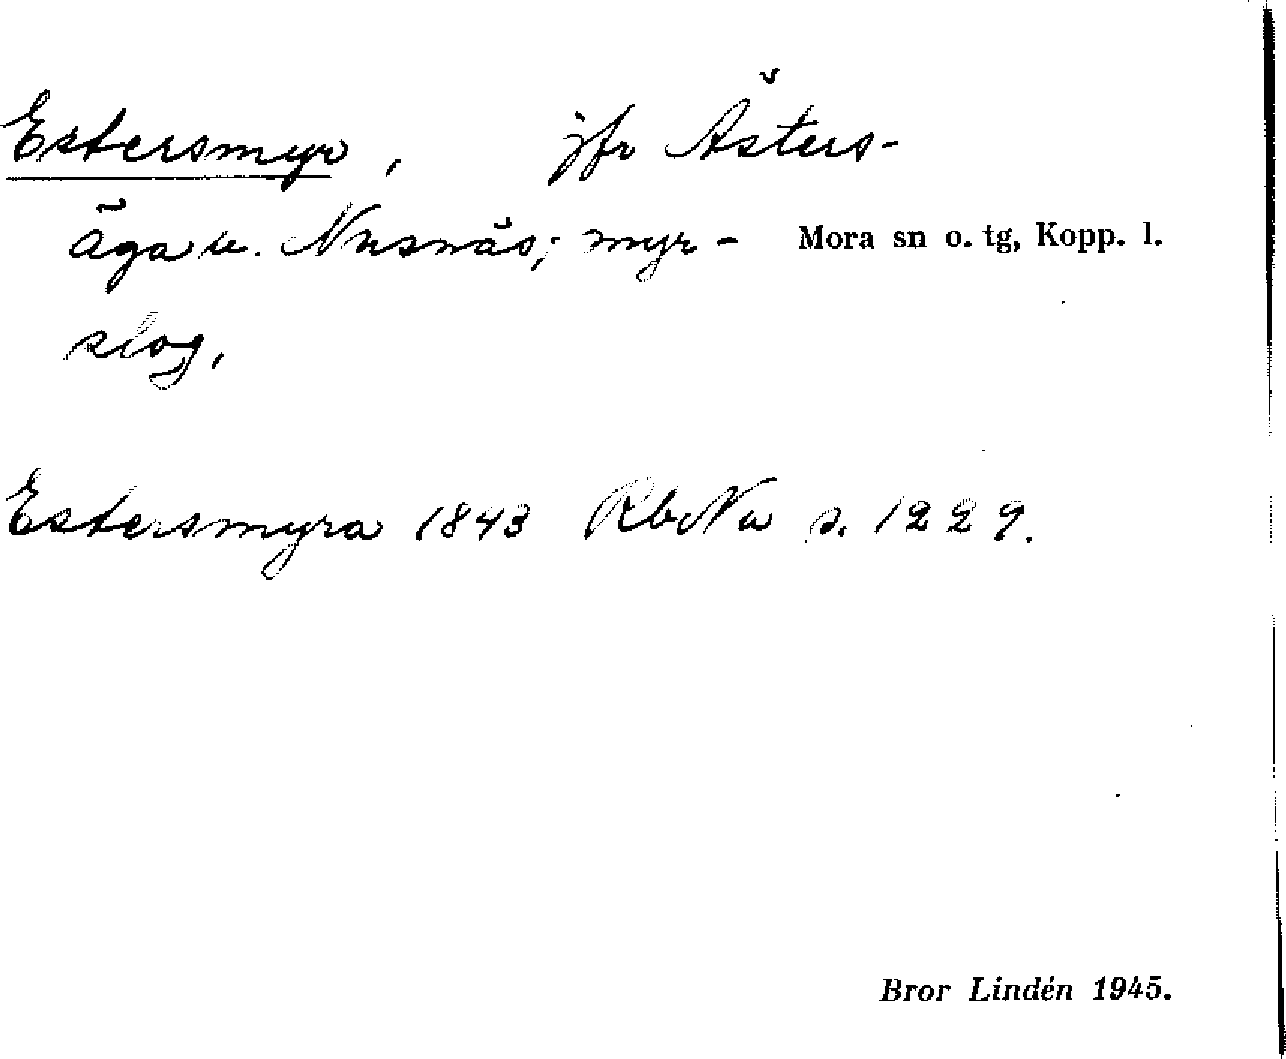 Estersmyr, jfrÄsters-
äga u. Nusnäs; myr- Mora sn o. tg, Kopp. l.
slog,
Estersmyra 1843 RbNu s. 1229.
Bror Lindén 1945.